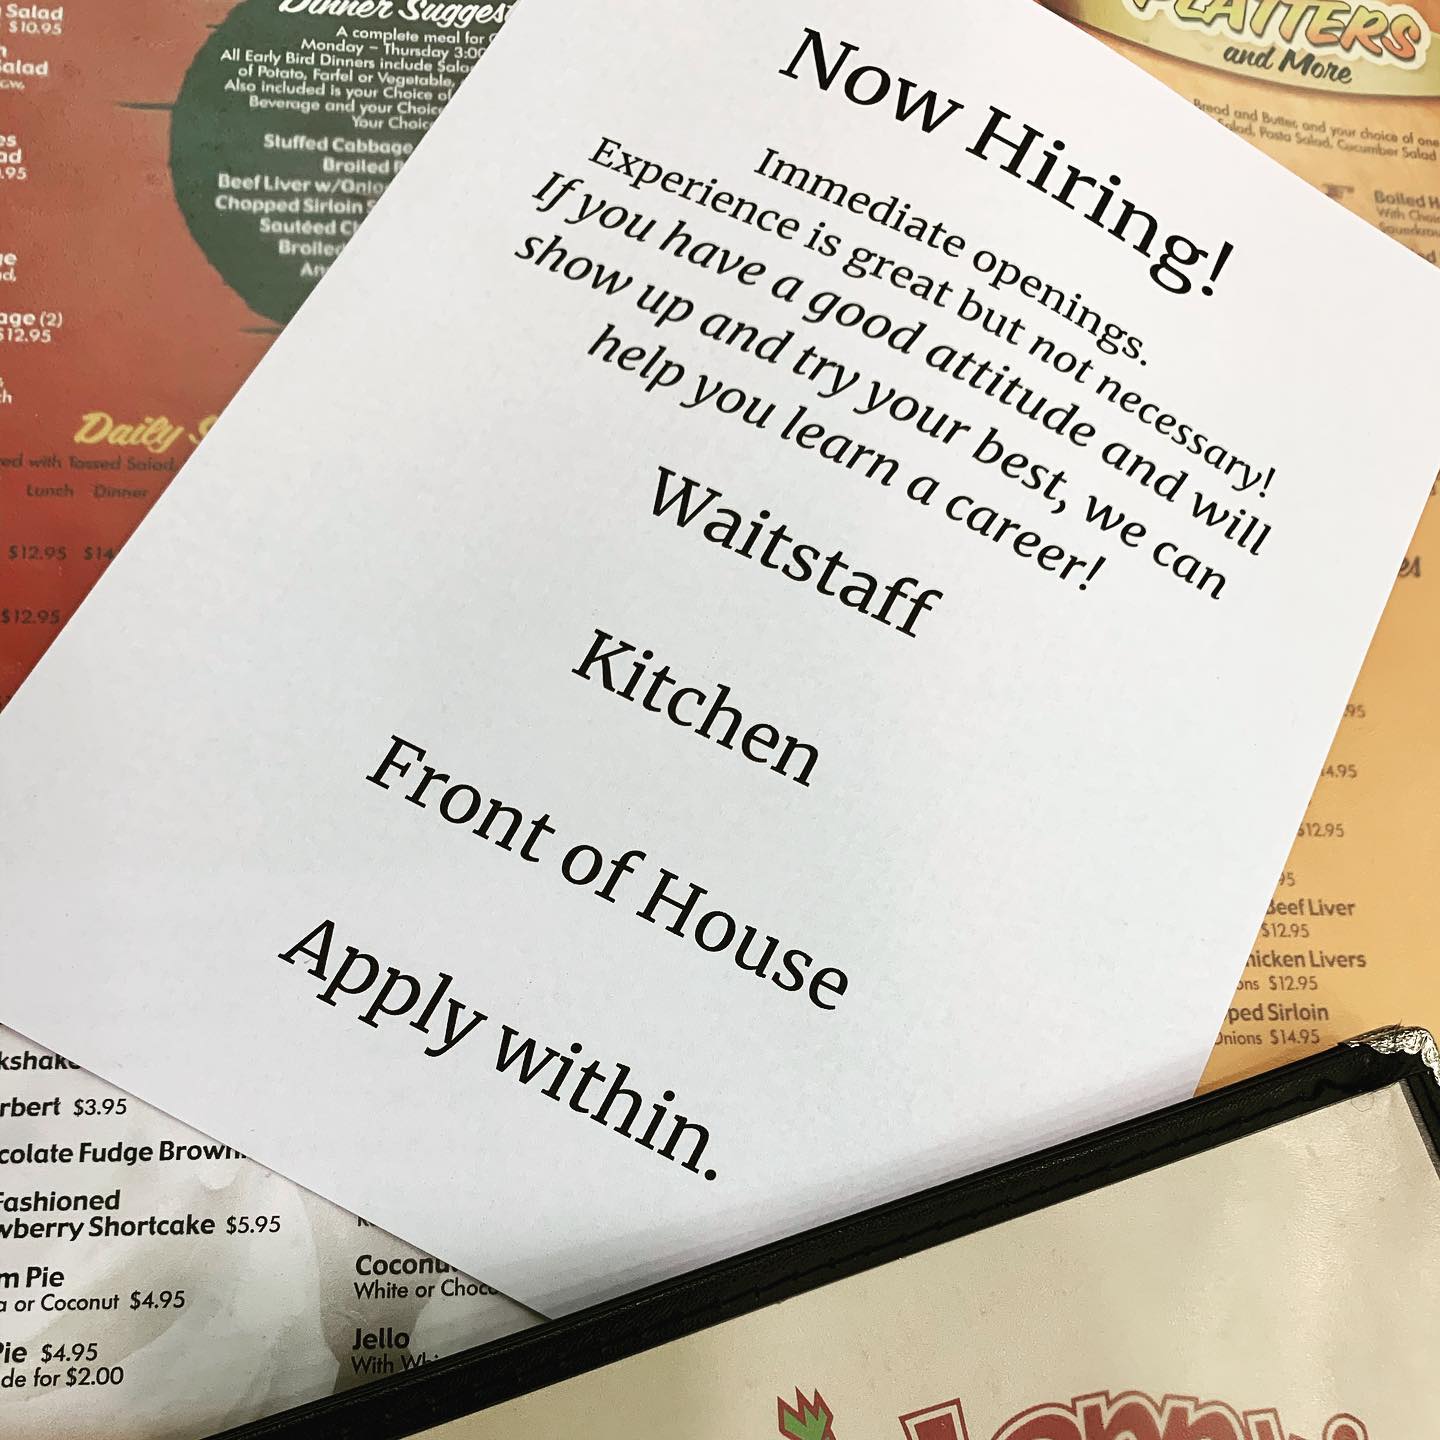 Salad
$10.95
Salad
.95
(2)
$12.95
Dinner
A complete meal for
Monday – Thursday 3:00
All Early Bird Dinners include
of Potato, Farfel or Vegetable,
Also included is your Choice of
Beverage and your
Your
Stuffed Cabbage
Broiled
Beef Liver
Chopped Sirloin
Sautéed
Daily
with Tossed Salad,
Lunch Dinner
$12.95
$12.95
Now Hiring!
Immediate openings.
Experience is great but not necessary!
If you have a good attitude and will
show up and try your best, we can
help you learn a career!
Waitstaff
Kitchen
Front of House
Apply within.
PLATTERS
and More
Bread and Butter, and your choice of one
Salad, Pasta Salad, Cucumber Salad
Boiled
With
.95
$12.95
95
Beef Liver
$12.95
Livers
$12.95
Sirloin
Onions $14.95
$3.95
Fudge
Shortcake $5.95
Pie
or Coconut $4.95
$4.95
for $2.00
White or
Jello
With